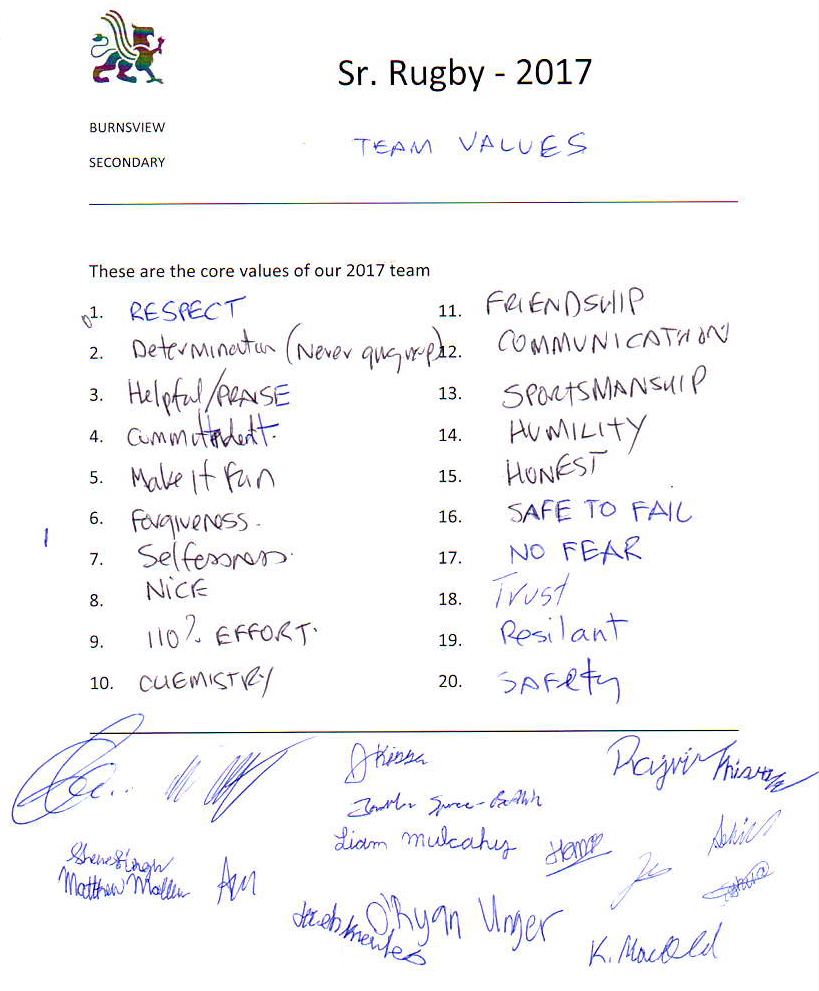 Sr. Rugby - 2017
BURNSVIEW
SECONDARY
TEAM VALUES
These are the core values of our 2017 team
1. RESPECT
2. Determination (Never give up)
3. Helpful/PRAISE
4. Committment.
5. Make it Fun
6. Forgiveness.
7. Selfessness.
8. NICE
9. 110% EFFORT.
10. CHEMISTRY
11. FRIENDSHIP
12. COMMUNICATION
13. SPORTSMANSHIP
14. HUMILITY
15. HONEST
16. SAFE TO FAIL
17. NO FEAR
18. Trust
19. Resilant
20. SAFETY
Liam Mulcahy
Matthew
O'Ryan Unger